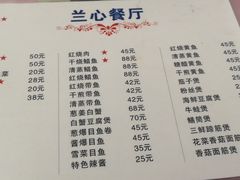 兰心餐厅
50元
20元
菜 28元
28元
38元
红烧肉 45元
干烧鲳鱼 88元
清蒸鲳鱼 88元
红烧带鱼 45元
干煎带鱼 45元
清蒸带鱼 45元
葱姜白蟹 68元
白蟹豆腐煲 70元
葱爆目鱼卷 45元
酱爆目鱼 45元
雪菜目鱼 35元
特色辣酱 25元
红烧
清蒸黄鱼
糖醋黄鱼
干煎黄鱼
茄子煲
粉丝煲
海鲜豆腐煲
牛蛙煲
鳝筒煲
三鲜蹄筋煲
花菜香菇面筋
香菇面筋煲